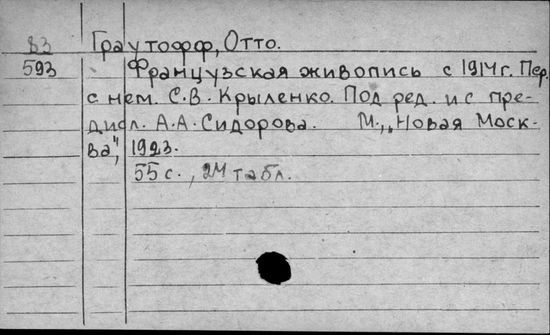 83 Граутофф, Отто.
593 Французская живопись с 1914г. Пер.
с нем. С.В. Крыленко. Под ред. и с пре-
дисл. А.А. Сидорова. М., „Новая Моск-
ва", 1923.
55 с., 24 табл.